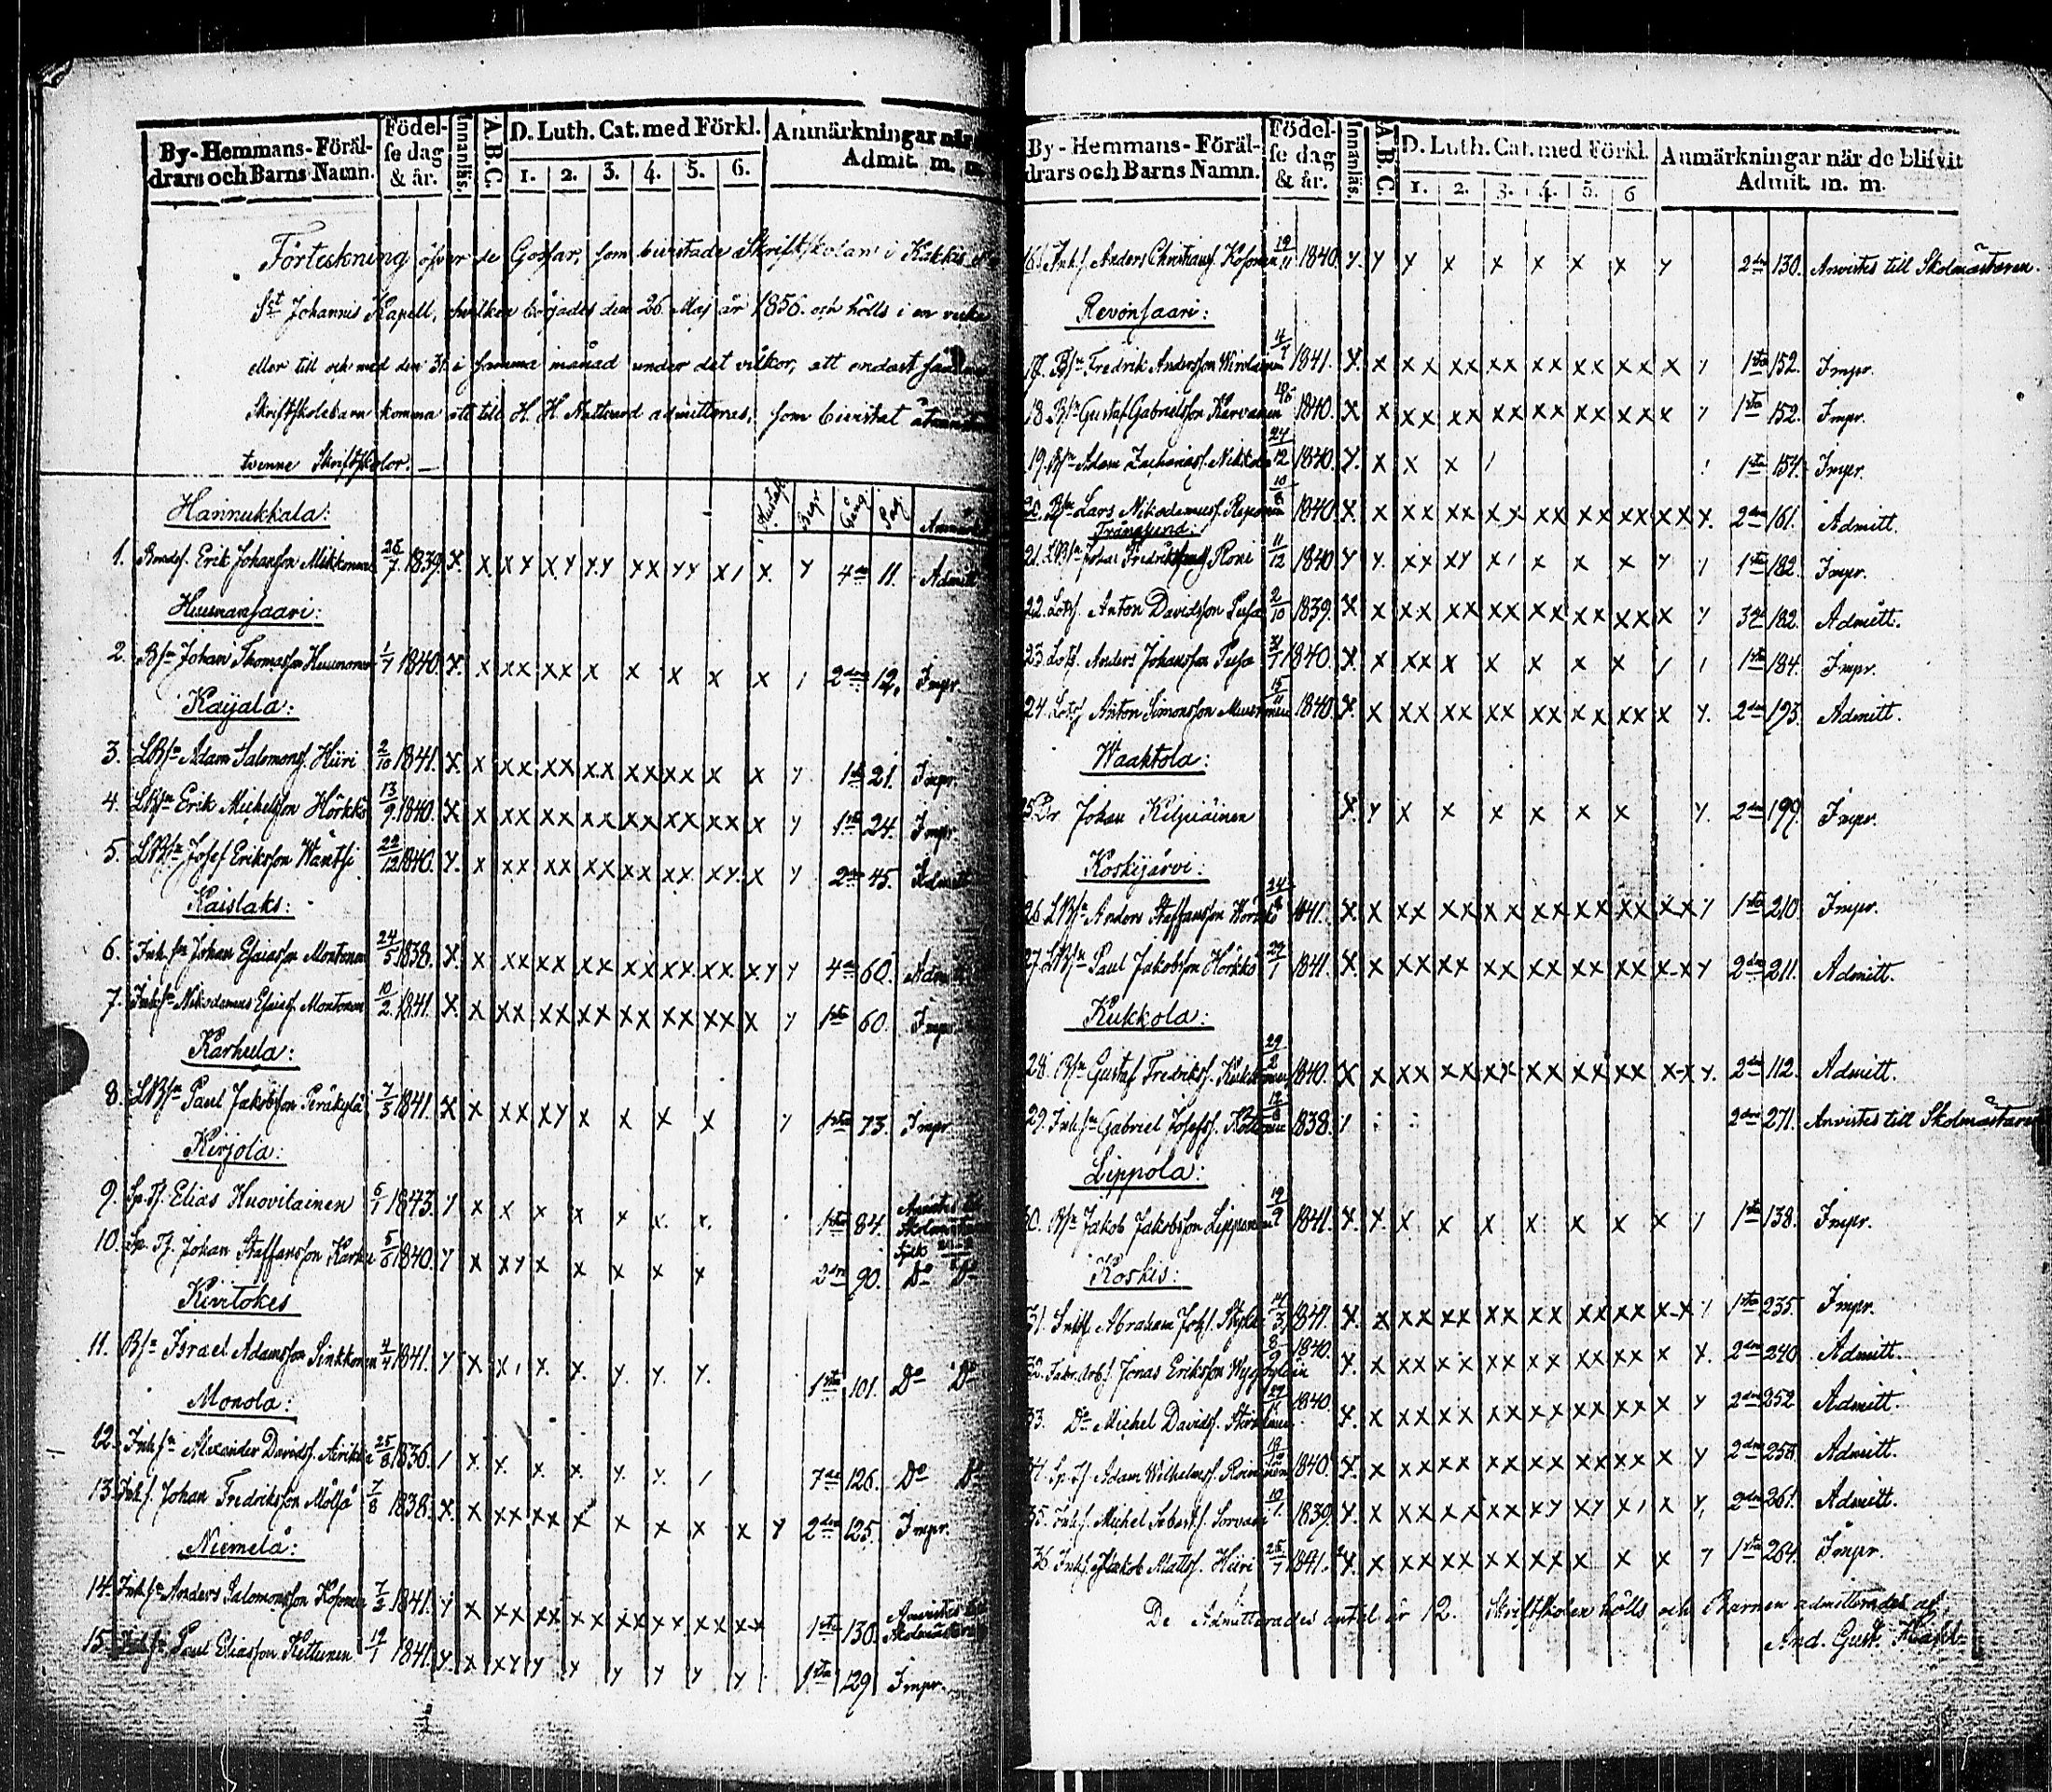 By-Hemmans-Föräl-
drars och Barns Namn.
Födel-
se dag
& år.
Innanläs.
A.B.C.
D. Luth. Cat. med Förkl.
1. 2. 3. 4. 5. 6.
Anmärkningar när
Admit. m. m.
Förteckning öfver de Gossar, som bevistade Skriftskolan i Kakkis
St Johannis Kapell, hvilken börjades den 26 Maj år 1856 och hölls i en vecka
eller till och med den 31 i samma månad under det vilkor, att endast
Skriftskolebarn komma att till H. H. Nattvard admitteras, som bevistat åtminstone
tvenne Skriftskolor. —
Hannukkala:
1. Erik Johansson Mikkonen 28/7 1839. X X XX XX XX XX XX X 4de 11. Admitt.
Huunansaari:
2. Bsn Johan Thomasson Huunonen 1/7 1840. X X XX XX X X X X X 2dra 12. Impr.
Kaijala:
3. LBsn Adam Salomons. Hiiri 2/10 1841. X X XX XX XX XX XX X X 1sta 21. Impr.
4. LBsn Erik Michelsson Hörkkö 13/9 1840. X X XX XX XX XX XX XX X 1sta 24. Impr.
5. LBsn Josef Eriksson Wäntsi 22/12 1840. X X XX XX XX XX XX XX X 2dra 45. Admitt.
Kaislaks:
6. Inh.sn Johan Esaiasson Montonen 24/5 1838. X X XX XX XX XX XX XX XX 4de 60. Admitt.
7. Inh.sn Nikodemus Esaias. Montonen 10/2 1841. X X XX XX XX XX XX XX X 1sta 60. Impr.
Karhula:
8. LBsn Paul Jakobsson Peräkylä 7/3 1841. X X XX XX X X X X 1sta 73. Impr.
Kirjola:
9. Sp. Elias Huovilainen 6/1 1843. X X X X X X X 1sta 84. Anvistes till
Skolmästaren
10. Sp. Johan Staffansson Karhu 5/6 1840. X X XX X X X X X 2dra 90. Do Do
Kiritokes
11. Bsn Israel Adamsson Sinkkonen 4/4 1841. X X X X X X X X 1sta 101. Do Do
Monola:
12. Inh.sn Alexander Davids. 25/8 1836. X X X X X X 7de 126. Do Do
13. Inh.s. Johan Fredriksson Mölsä 7/8 1838. X X XX XX X X X X X 2dra 125. Impr.
Niemelä:
14. Inh.sn Anders Salomonsson Kosonen 7/2 1841. X X XX XX XX XX XX XX 1sta 130. Anvistes till
Skolmästaren
15. Inh.sn Paul Eliasson Kettunen 19/1 1841. X X XX X X X X X X 1sta 129 Impr.
By-Hemmans-Föräl-
drars och Barns Namn.
Födel-
se dag
& år.
Innanläs.
A.B.C.
D. Luth. Cat. med Förkl.
1. 2. 3. 4. 5. 6
Anmärkningar när de blifvit
Admit. m. m.
16. Inh.s. Anders Christians. Kosonen 19/11 1840. X X X X X X X X 2dra 130. Anvistes till Skolmästaren.
Revonsaari:
17. Bsn Fredrik Andersson Wirolainen 4/4 1841. X X XX XX XX XX XX XX X 1sta 152. Impr.
18. Bsn Gustaf Gabrielsson Karvanen 1840. X X XX XX XX XX XX XX X 1sta 152. Impr.
19. Bsn Adam Zachariass. 24/12 1840. X X X X 1sta 154. Impr.
20. Bsn Lars Nikodemus. Reponen 10/8 1840. X X XX XX XX XX XX XX XX X. 2dra 161. Admitt.
Trångsund:
21. LBsn Johan Fredriksson Roni 11/12 1840. X X XX XX X X X X 1sta 182. Impr.
22. Lots. Anton Davidsson Pusa 2/10 1839. X X XX XX XX XX XX XX X 3de 182. Admitt.
23. Lots. Anders Johansson Pusa 1840. X X XX X X X X X 1sta 184. Impr.
24. Lots. Anton Simonsson Mustonen 15/11 1840. X X XX XX XX XX XX XX X 2dra 193. Admitt.
Waahtola:
25. Dr. Johan Kiljuäinen X X X X X X X X 2dra 199. Impr.
Koskijärvi:
26. LBsn Anders Staffansson 1841. X X XX XX XX XX XX XX XX 1sta 210. Impr.
27. LBsn Paul Jakobsson Hörkkö 29/1 1841. X X XX XX XX XX XX XX XX 2dra 211. Admitt.
Kukkola:
28. Bsn Gustaf Fredriks. Kukkonen 29/2 1840. X X XX XX XX XX XX XX XX 2dra 112. Admitt.
29. Inh.sn Gabriel Josefss. 1838. 2dra 271. Anvistes till Skolmästaren
Lippola:
30. Bsn Jakob Jakobsson Lipponen 19/9 1841. X X X X X X X X X 1sta 138. Impr.
Koskis:
31. Inh.s. Abraham Joh.s. 1841. X X XX XX XX XX XX XX XX 1sta 235. Impr.
32. Fabr.Arb.s. Jonas Eriksson 8/9 1840. X X XX XX XX XX XX XX X 2dra 240. Admitt.
33. Do Michel Davids. 1840. X X XX XX XX XX XX XX X 2dra 252 Admitt.
34. Sp. Adam Wilhelms. Roininen 1840. X X XX XX XX XX XX XX X 2dra 258. Admitt.
35. Inh.s. Michel Sorvari 10/1 1839. X X XX XX XX XX XX X X 2dra 261. Admitt.
36. Inh.s. Jakob Matts. Hiiri 25/7 1841. X X XX XX XX XX X X X 1sta 264. Impr.
De Admitterades antal är 12. Skriftskolan hölls och Barnen admitterades af
And. Gust.